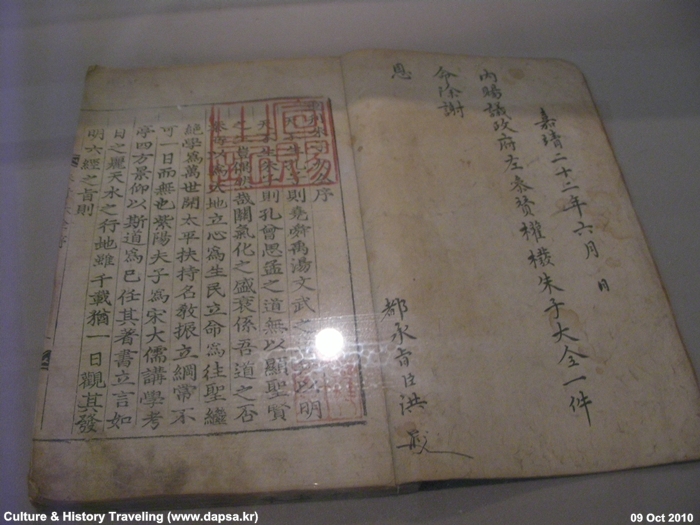 嘉靖二十二年六月 日
內賜議政府左參贊權橃朱子大全一件
命除謝
恩
都承旨臣洪
序
則堯舜禹湯文武之以明
則孔曾思孟之道無以顯聖賢
哉關氣化之盛衰係吾道之否
地立心為生民立命為往聖繼
絕學為萬世開太平扶持名教振立綱常不
可一日而無也紫陽夫子為宋大儒講學考
亭四方景仰以斯道為已任其著書立言如
日之麗天水之行地雖千載猶一日觀其發
明六經之旨則
Culture & History Traveling (www.dapsa.kr)
09 Oct 2010